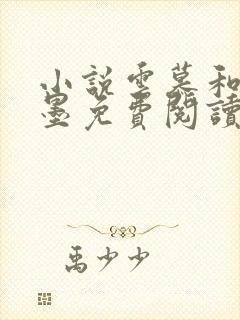 小說雲慕和
墨免費閱讀
禹少少